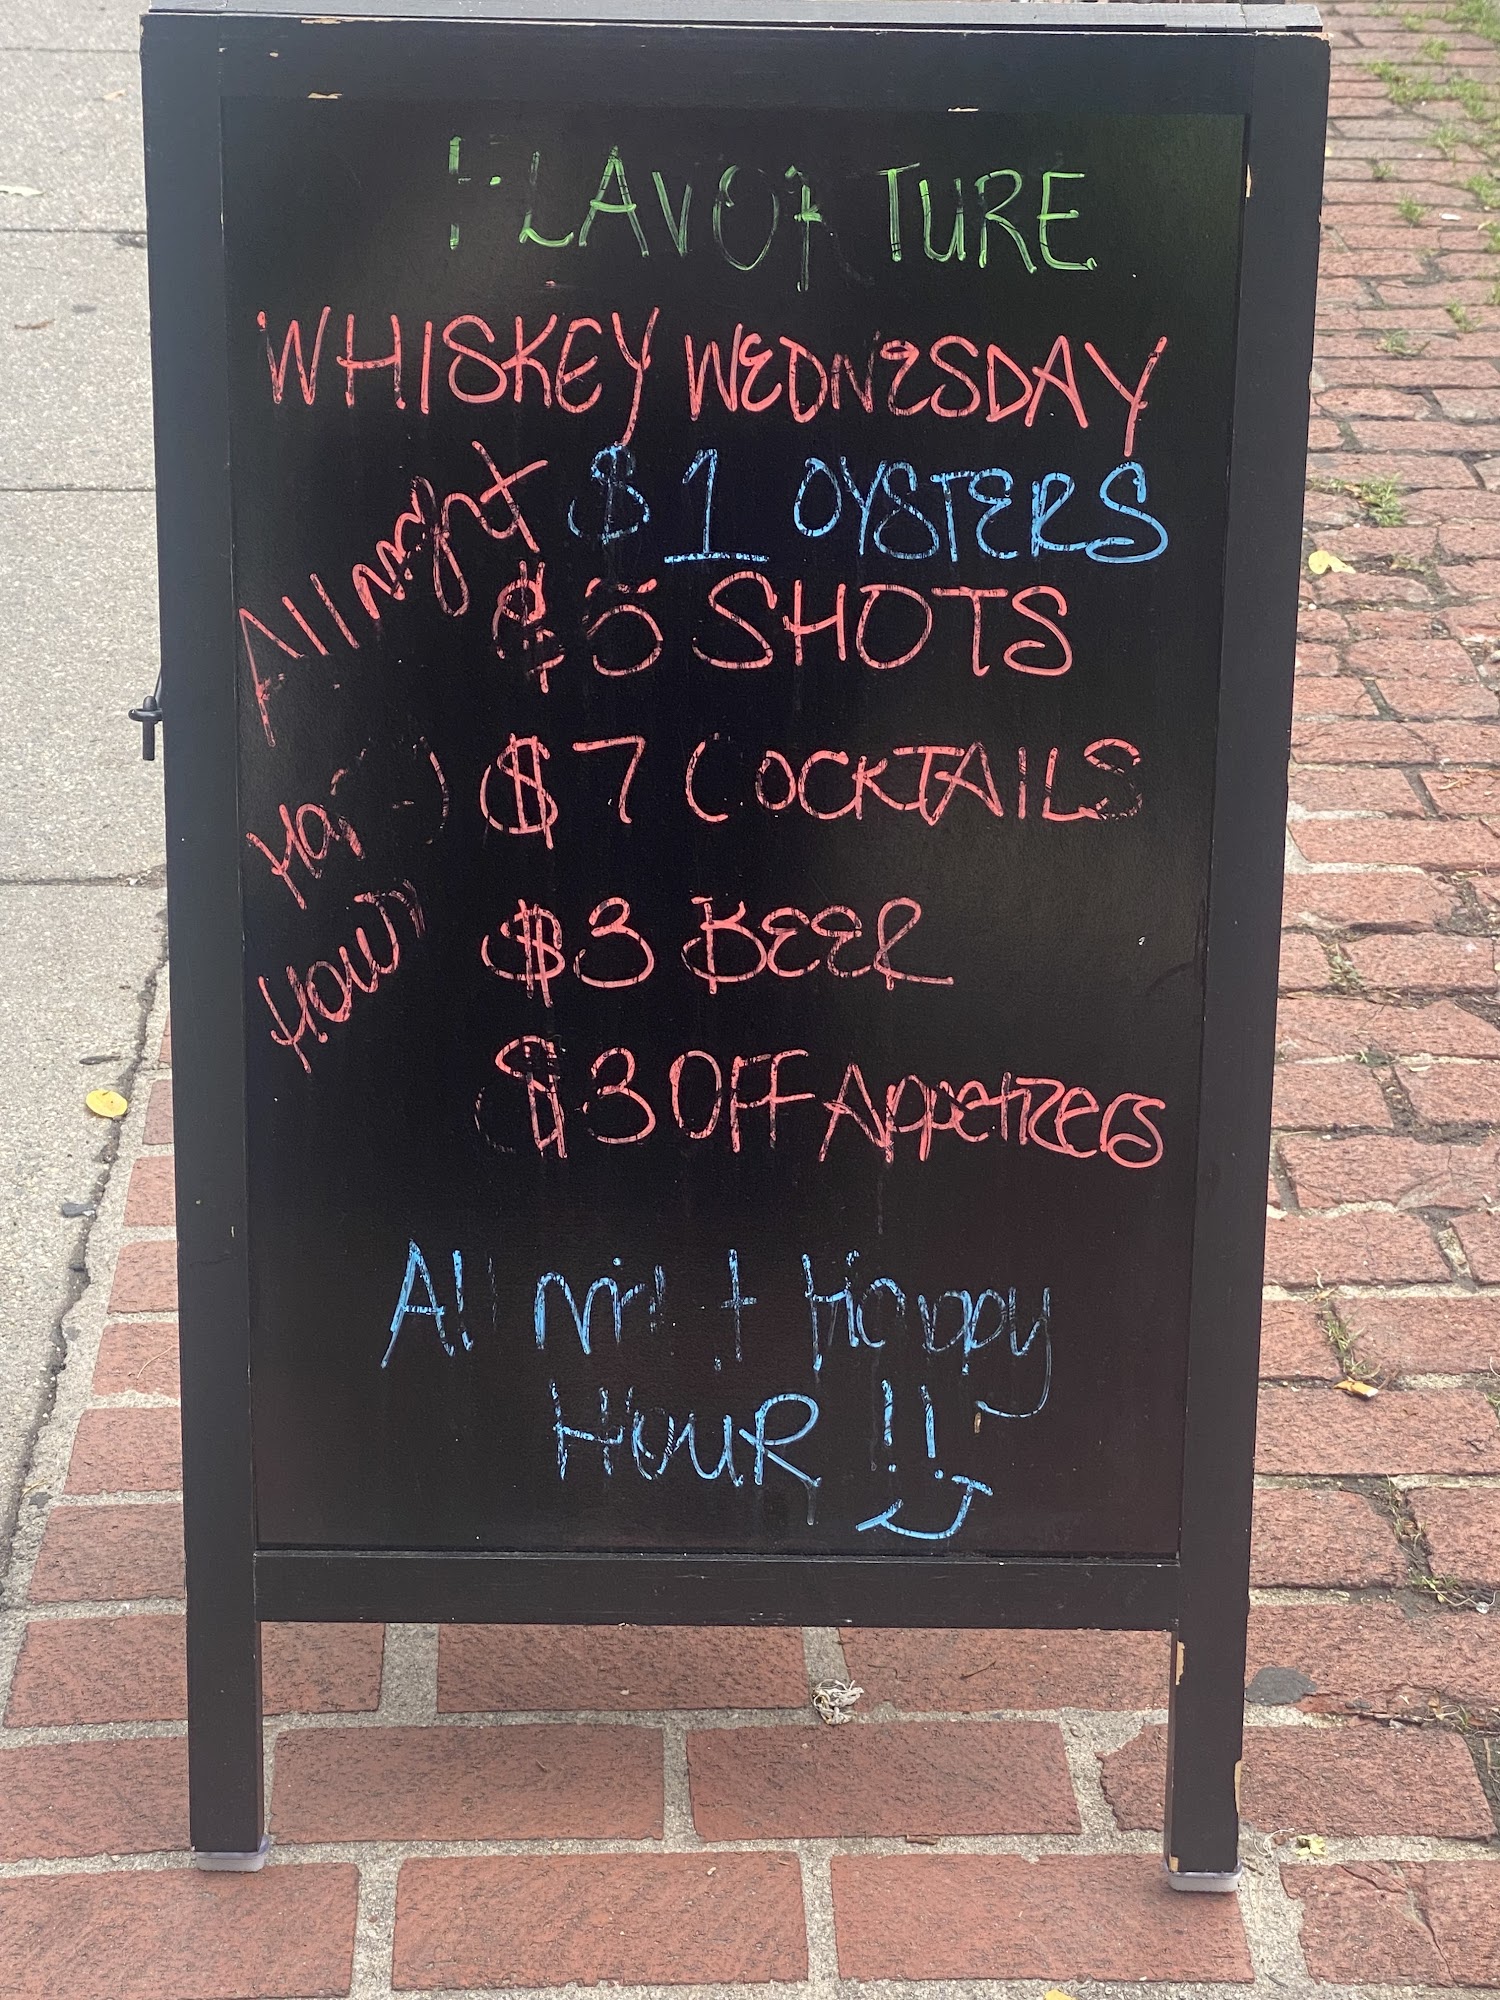 FLAVORTURE
WHISKEY WEDNESDAY
All night
$1 OYSTERS
$5 SHOTS
$7 COCKTAILS
$3 BEER
$3 OFF Appetizers
All night Happy
HOUR !!